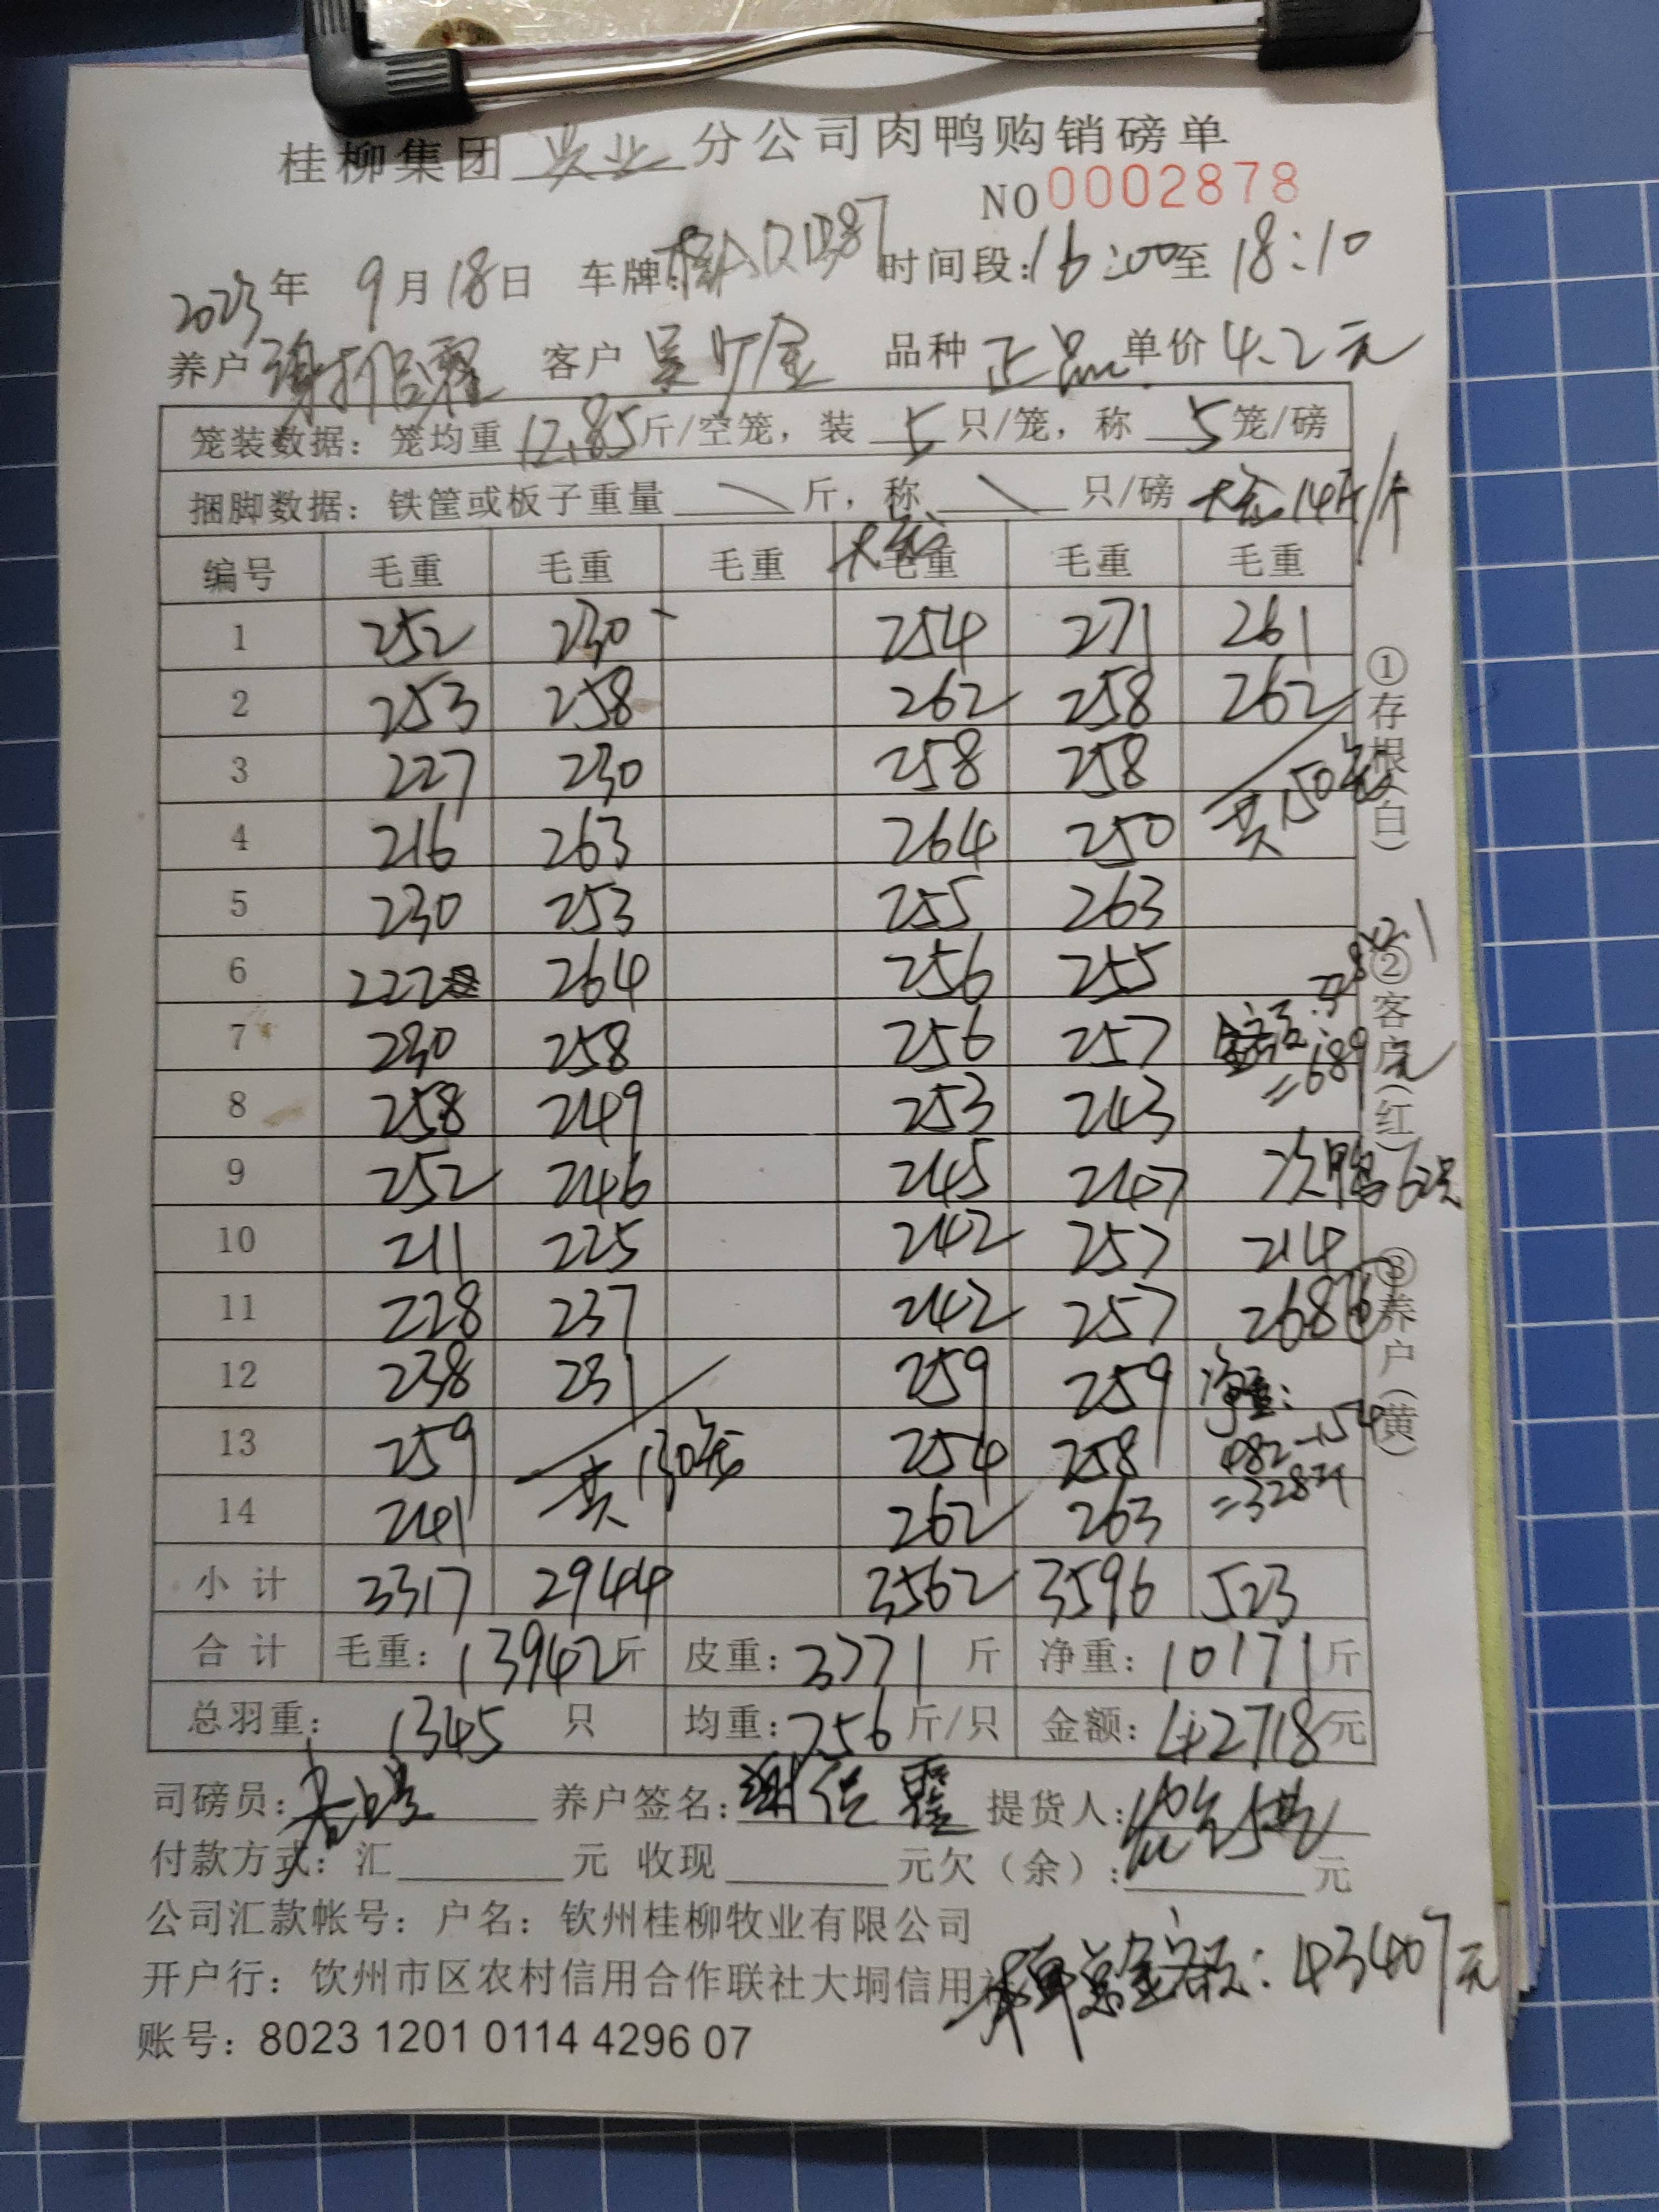 桂柳集团 兴业 分公司肉鸭购销磅单
NO 0002878
2023年 9月18日 车牌: 时间段:16:00至18:10
养户 客户 吴 金 品种 正品 单价 4.2元
笼装数据: 笼均重 12.85斤/空笼, 装 5 只/笼, 称 5 笼/磅
捆脚数据: 铁筐或板子重量 \ 斤, 称 \ 只/磅 大 14斤/个
大
编号 毛重 毛重 毛重 毛重 毛重 毛重
1 252 230 254 271 261
2 253 258 262 258 262
3 227 230 258 258
4 216 263 264 250 共150
5 230 253 255 263
6 222 264 256 255 328×2.1
7 230 258 256 257 金额:
8 258 249 253 243 =689元
9 252 246 245 247 次鸭62只
10 211 225 242 257 214
11 228 237 242 257 268
12 238 231 259 259 净重:
13 259 共130 254 258 482-154
14 241 262 263 =328斤
小计 3317 2944 3562 3596 523
合计 毛重: 13942斤 皮重: 3771 斤 净重: 10171斤
总羽重: 1345 只 均重: 756 斤/只 金额: 42718元
司磅员: 养户签名: 提货人:
付款方式: 汇 元 收现 元欠(余): 元
公司汇款帐号: 户名: 钦州桂柳牧业有限公司
开户行: 饮州市区农村信用合作联社大垌信用社
本单总金额: 43407元
账号: 8023 1201 0114 4296 07
①存根(白) ②客户(红) ③养户(黄)